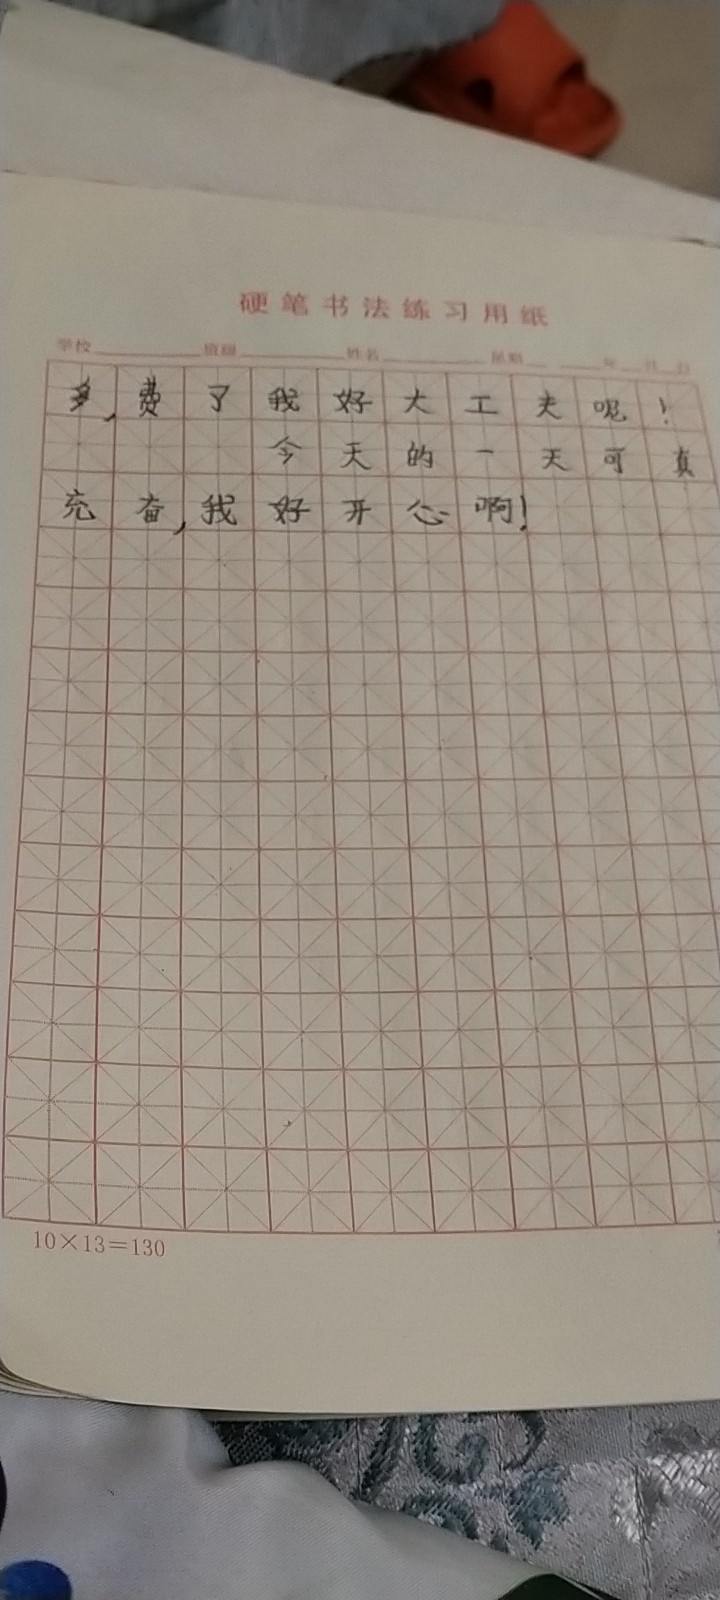 硬笔书法练习用纸
学校 班级 姓名 星期 年 月 日
多,费了我好大工夫呢!
今天的一天可真
充奋,我好开心啊!
10×13=130